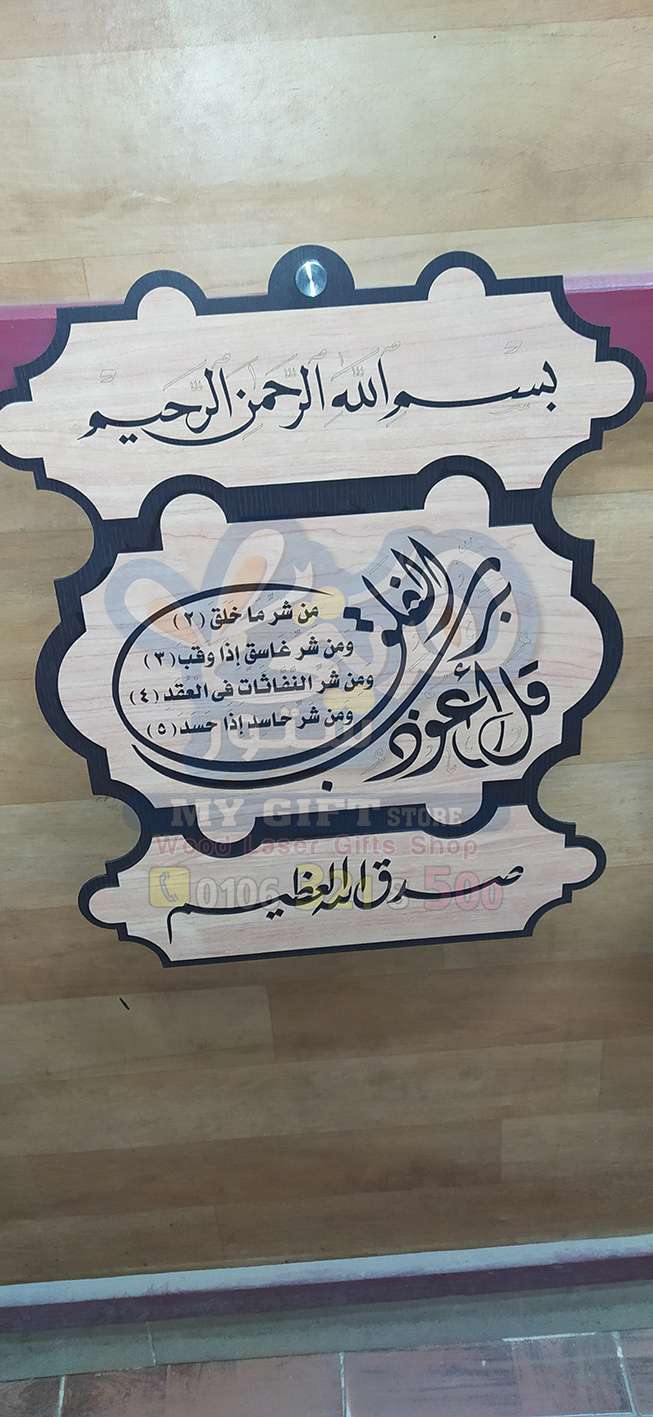 بسم الله الرحمن الرحيم
قل أعوذ برب الفلق
من شر ما خلق (٢)
ومن شر غاسق إذا وقب (٣)
ومن شر النفاثات فى العقد (٤)
ومن شر حاسد إذا حسد (٥)
ستور
MY GIFT STORE
Wood Laser Gifts Shop
صدق الله العظيم
0106 500